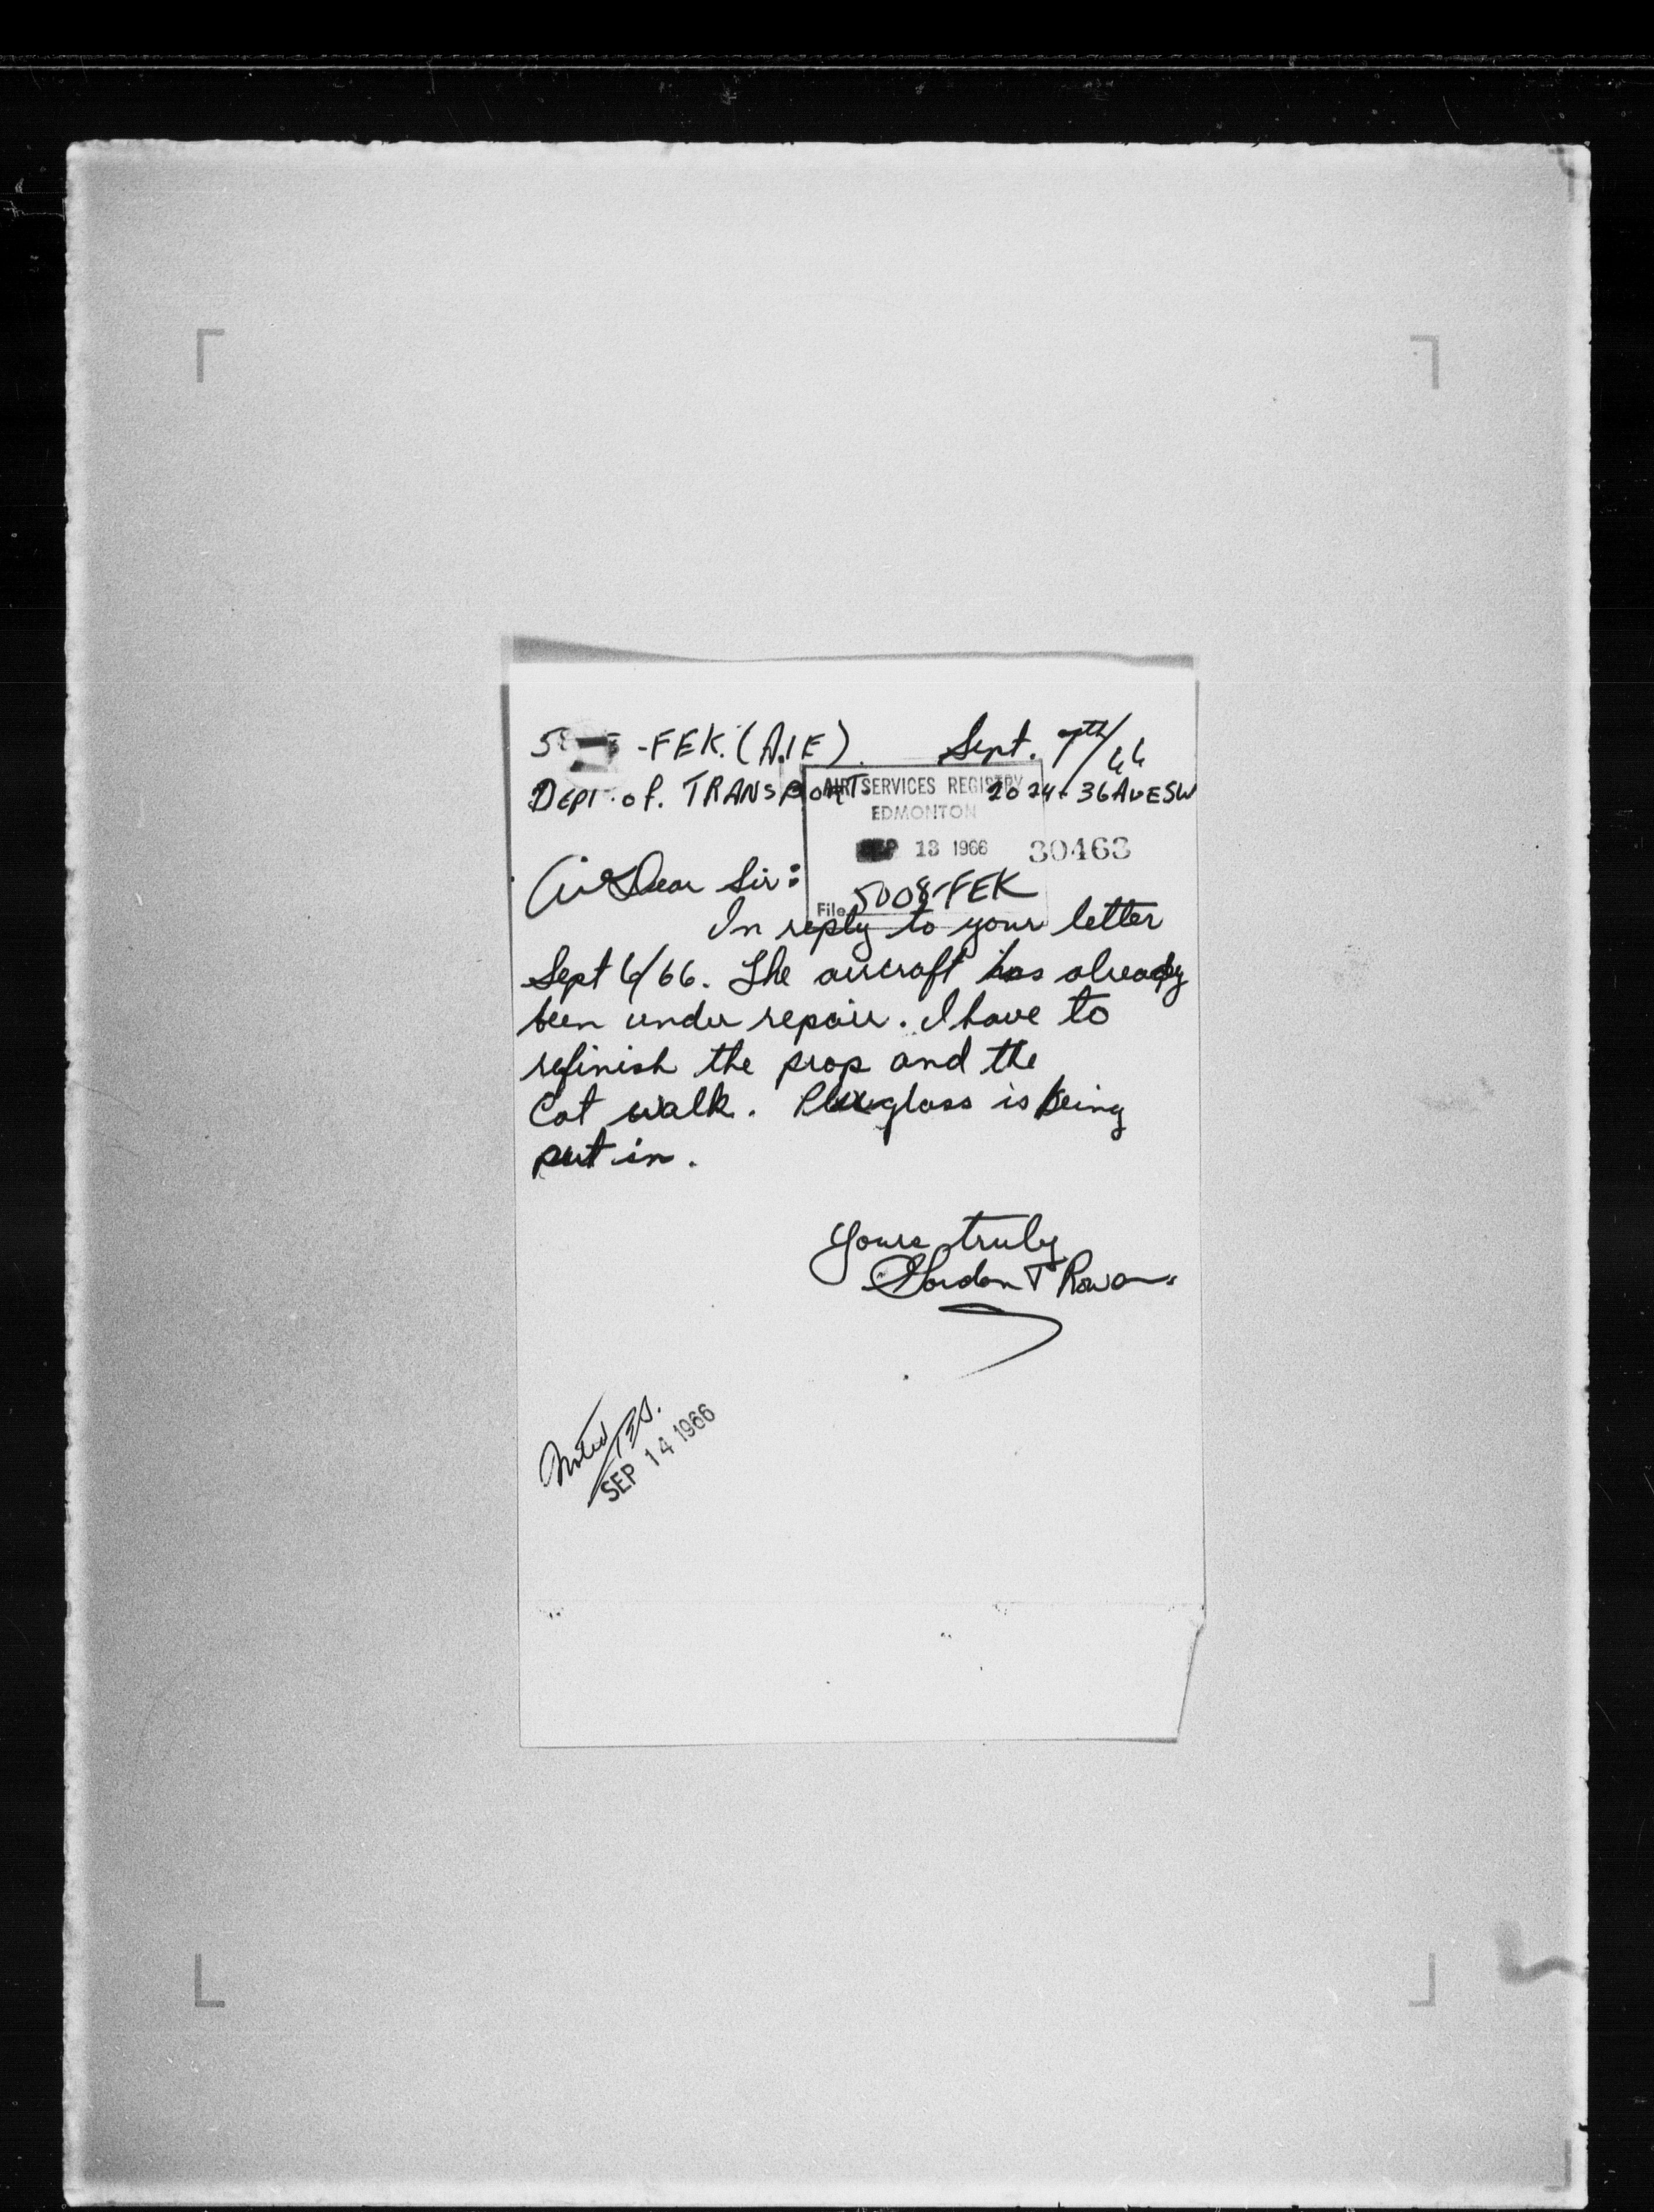 -FEK. (A.I.E). Sept. 7th/66
DEPT. of. TRANSPORT 2024-36AVESW
AIR SERVICES REGISTRY
EDMONTON
SEP 13 1966 30463
File 5008-FEK
Dear Sir:
In reply to your letter
Sept 6/66. The aircraft has already
been under repair. I have to
refinish the prop and the
Cat walk. Plexiglass is being
put in.
Yours truly
Gordon T Rowan
Noted
SEP 14 1966